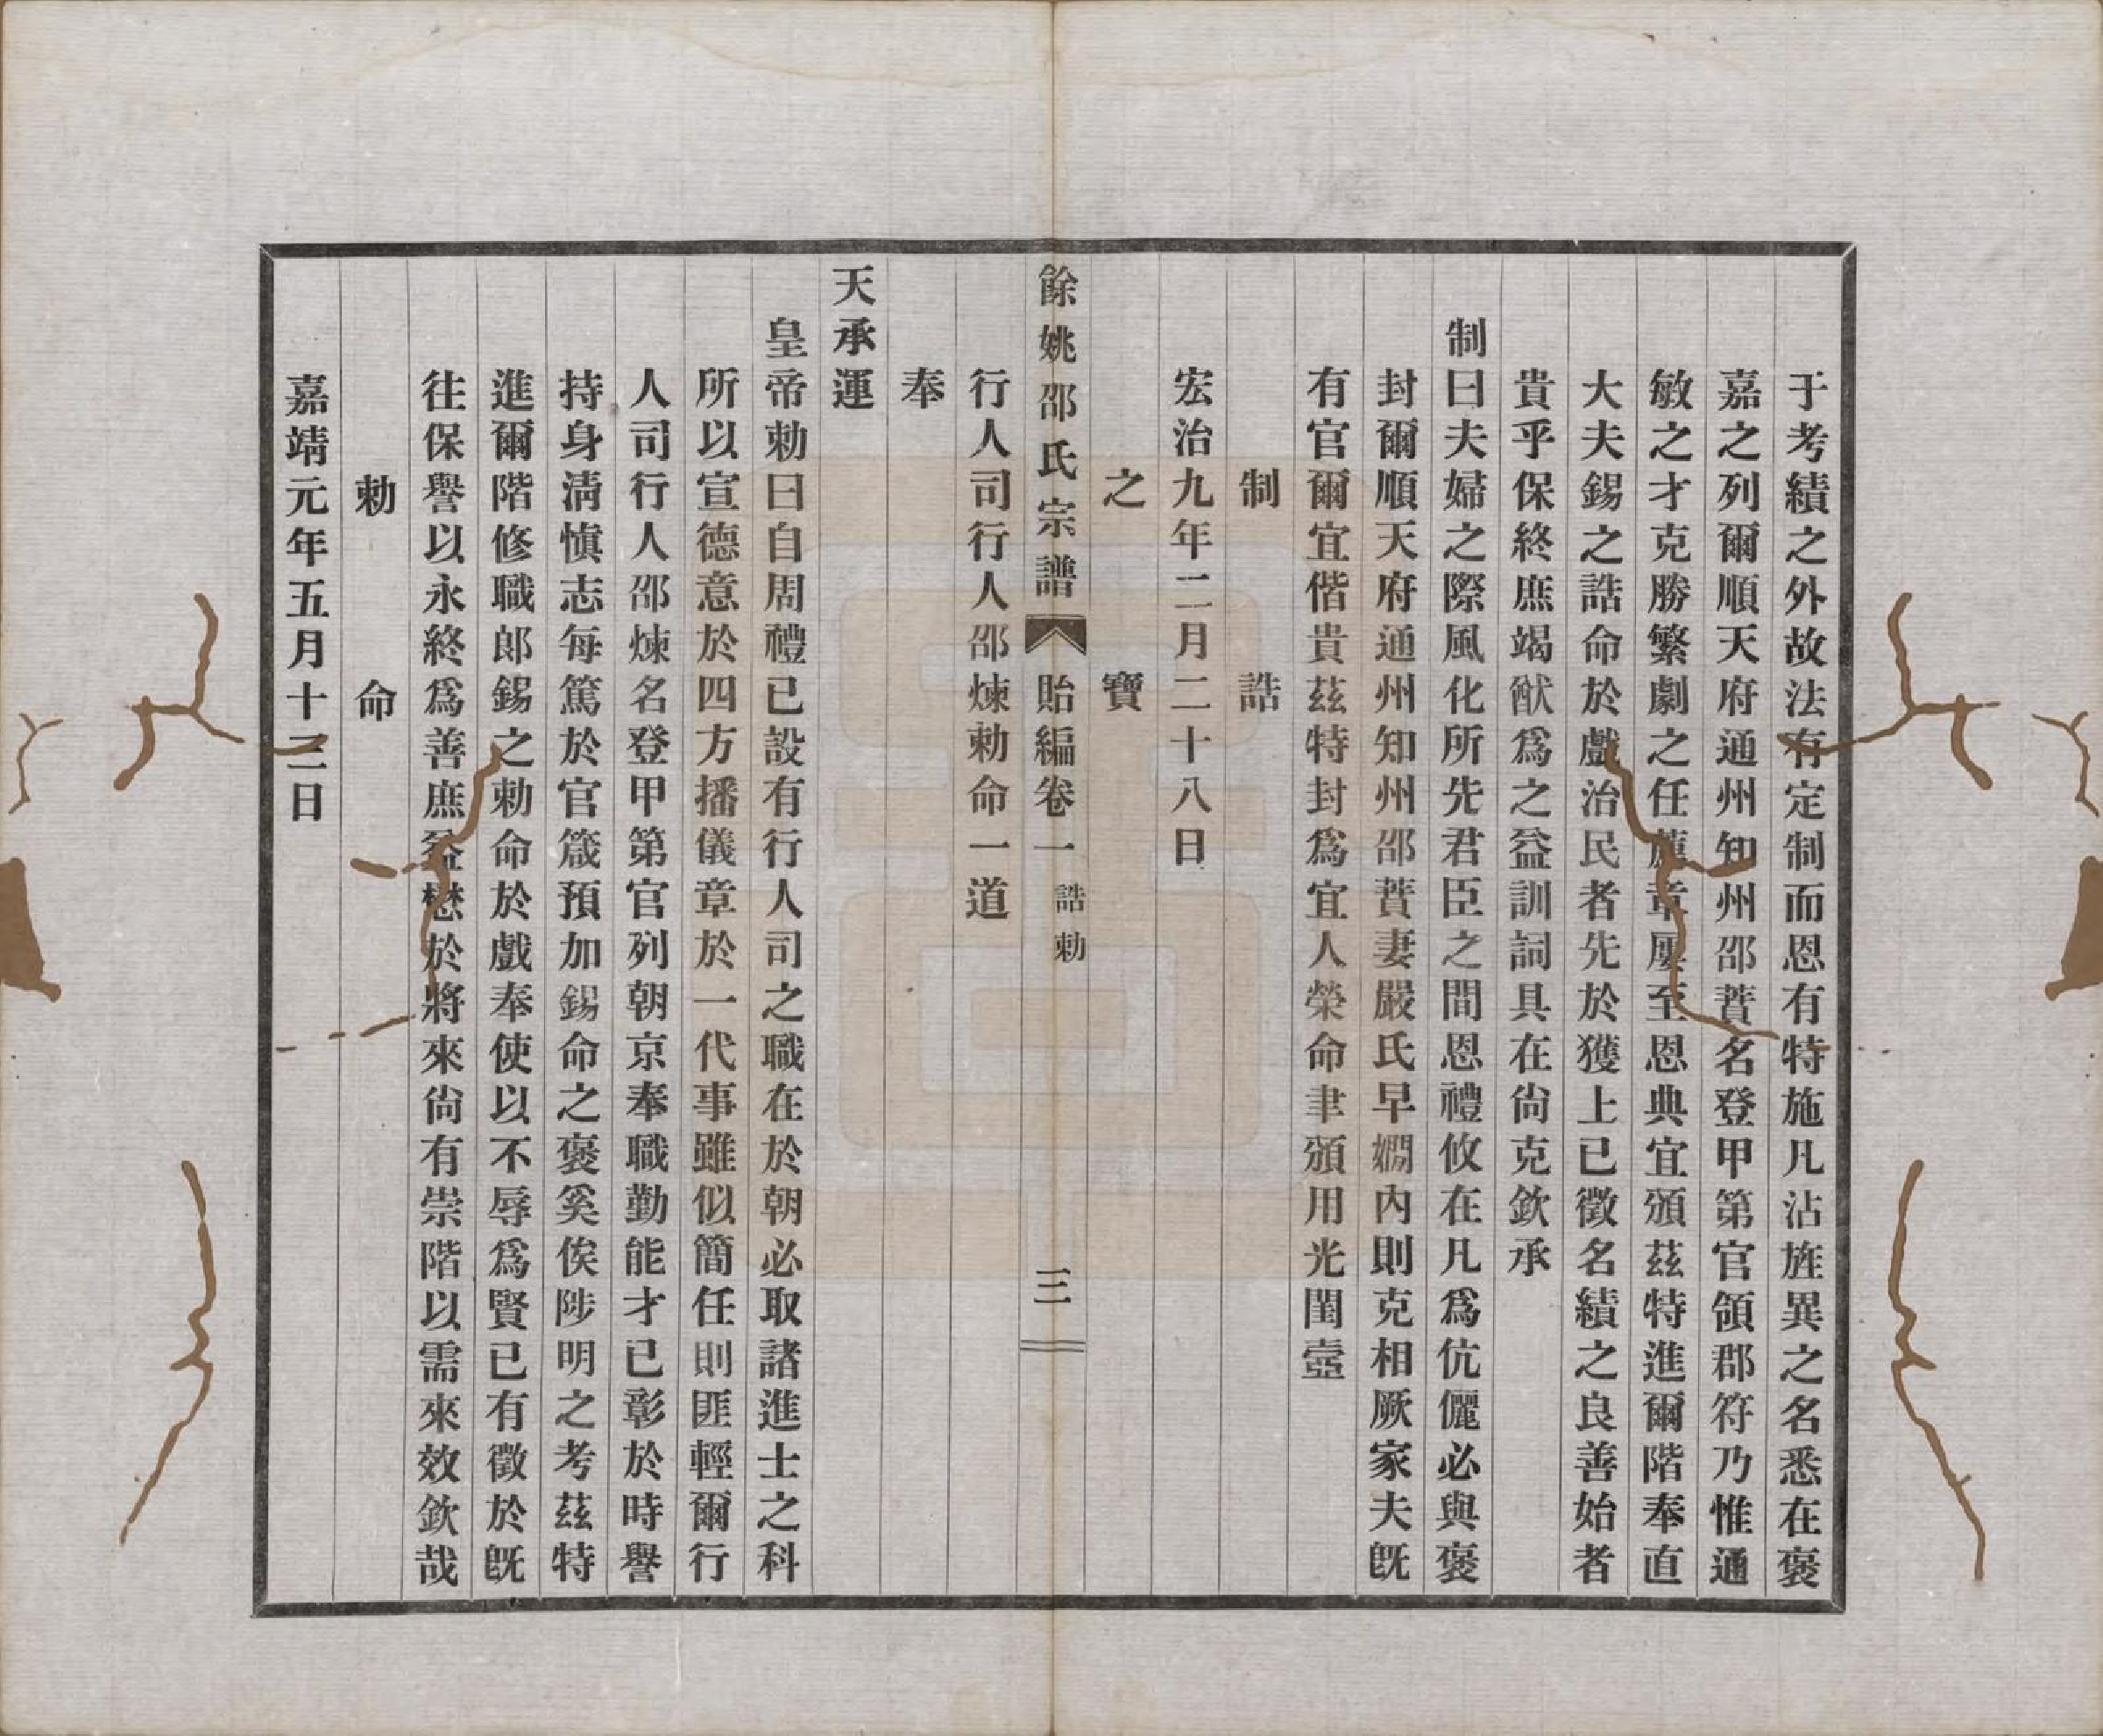 于考績之外故法有定制而恩有特施凡沾旌異之名悉在褒
嘉之列爾順天府通州知州邵蕡名登甲第官領郡符乃惟通
敏之才克勝繁劇之任薦章屢至恩典宜頒茲特進爾階奉直
大夫錫之誥命於戲治民者先於獲上已徵名績之良善始者
貴乎保終庶竭猷爲之益訓詞具在尙克欽承
制曰夫婦之際風化所先君臣之間恩禮攸在凡爲伉儷必與褒
封爾順天府通州知州邵蕡妻嚴氏早嫺內則克相厥家夫旣
有官爾宜偕貴茲特封爲宜人榮命聿頒用光閨壼
制誥
宏治九年二月二十八日
之寶
餘姚邵氏宗譜 貽編卷一 誥勅 三
行人司行人邵煉勅命一道
奉
天承運
皇帝勅曰自周禮已設有行人司之職在於朝必取諸進士之科
所以宣德意於四方播儀章於一代事雖似簡任則匪輕爾行
人司行人邵煉名登甲第官列朝京奉職勤能才已彰於時譽
持身淸愼志每篤於官箴預加錫命之褒奚俟陟明之考茲特
進爾階修職郞錫之勅命於戲奉使以不辱爲賢已有徵於旣
往保譽以永終爲善庶益懋於將來尙有崇階以需來效欽哉
勅命
嘉靖元年五月十三日